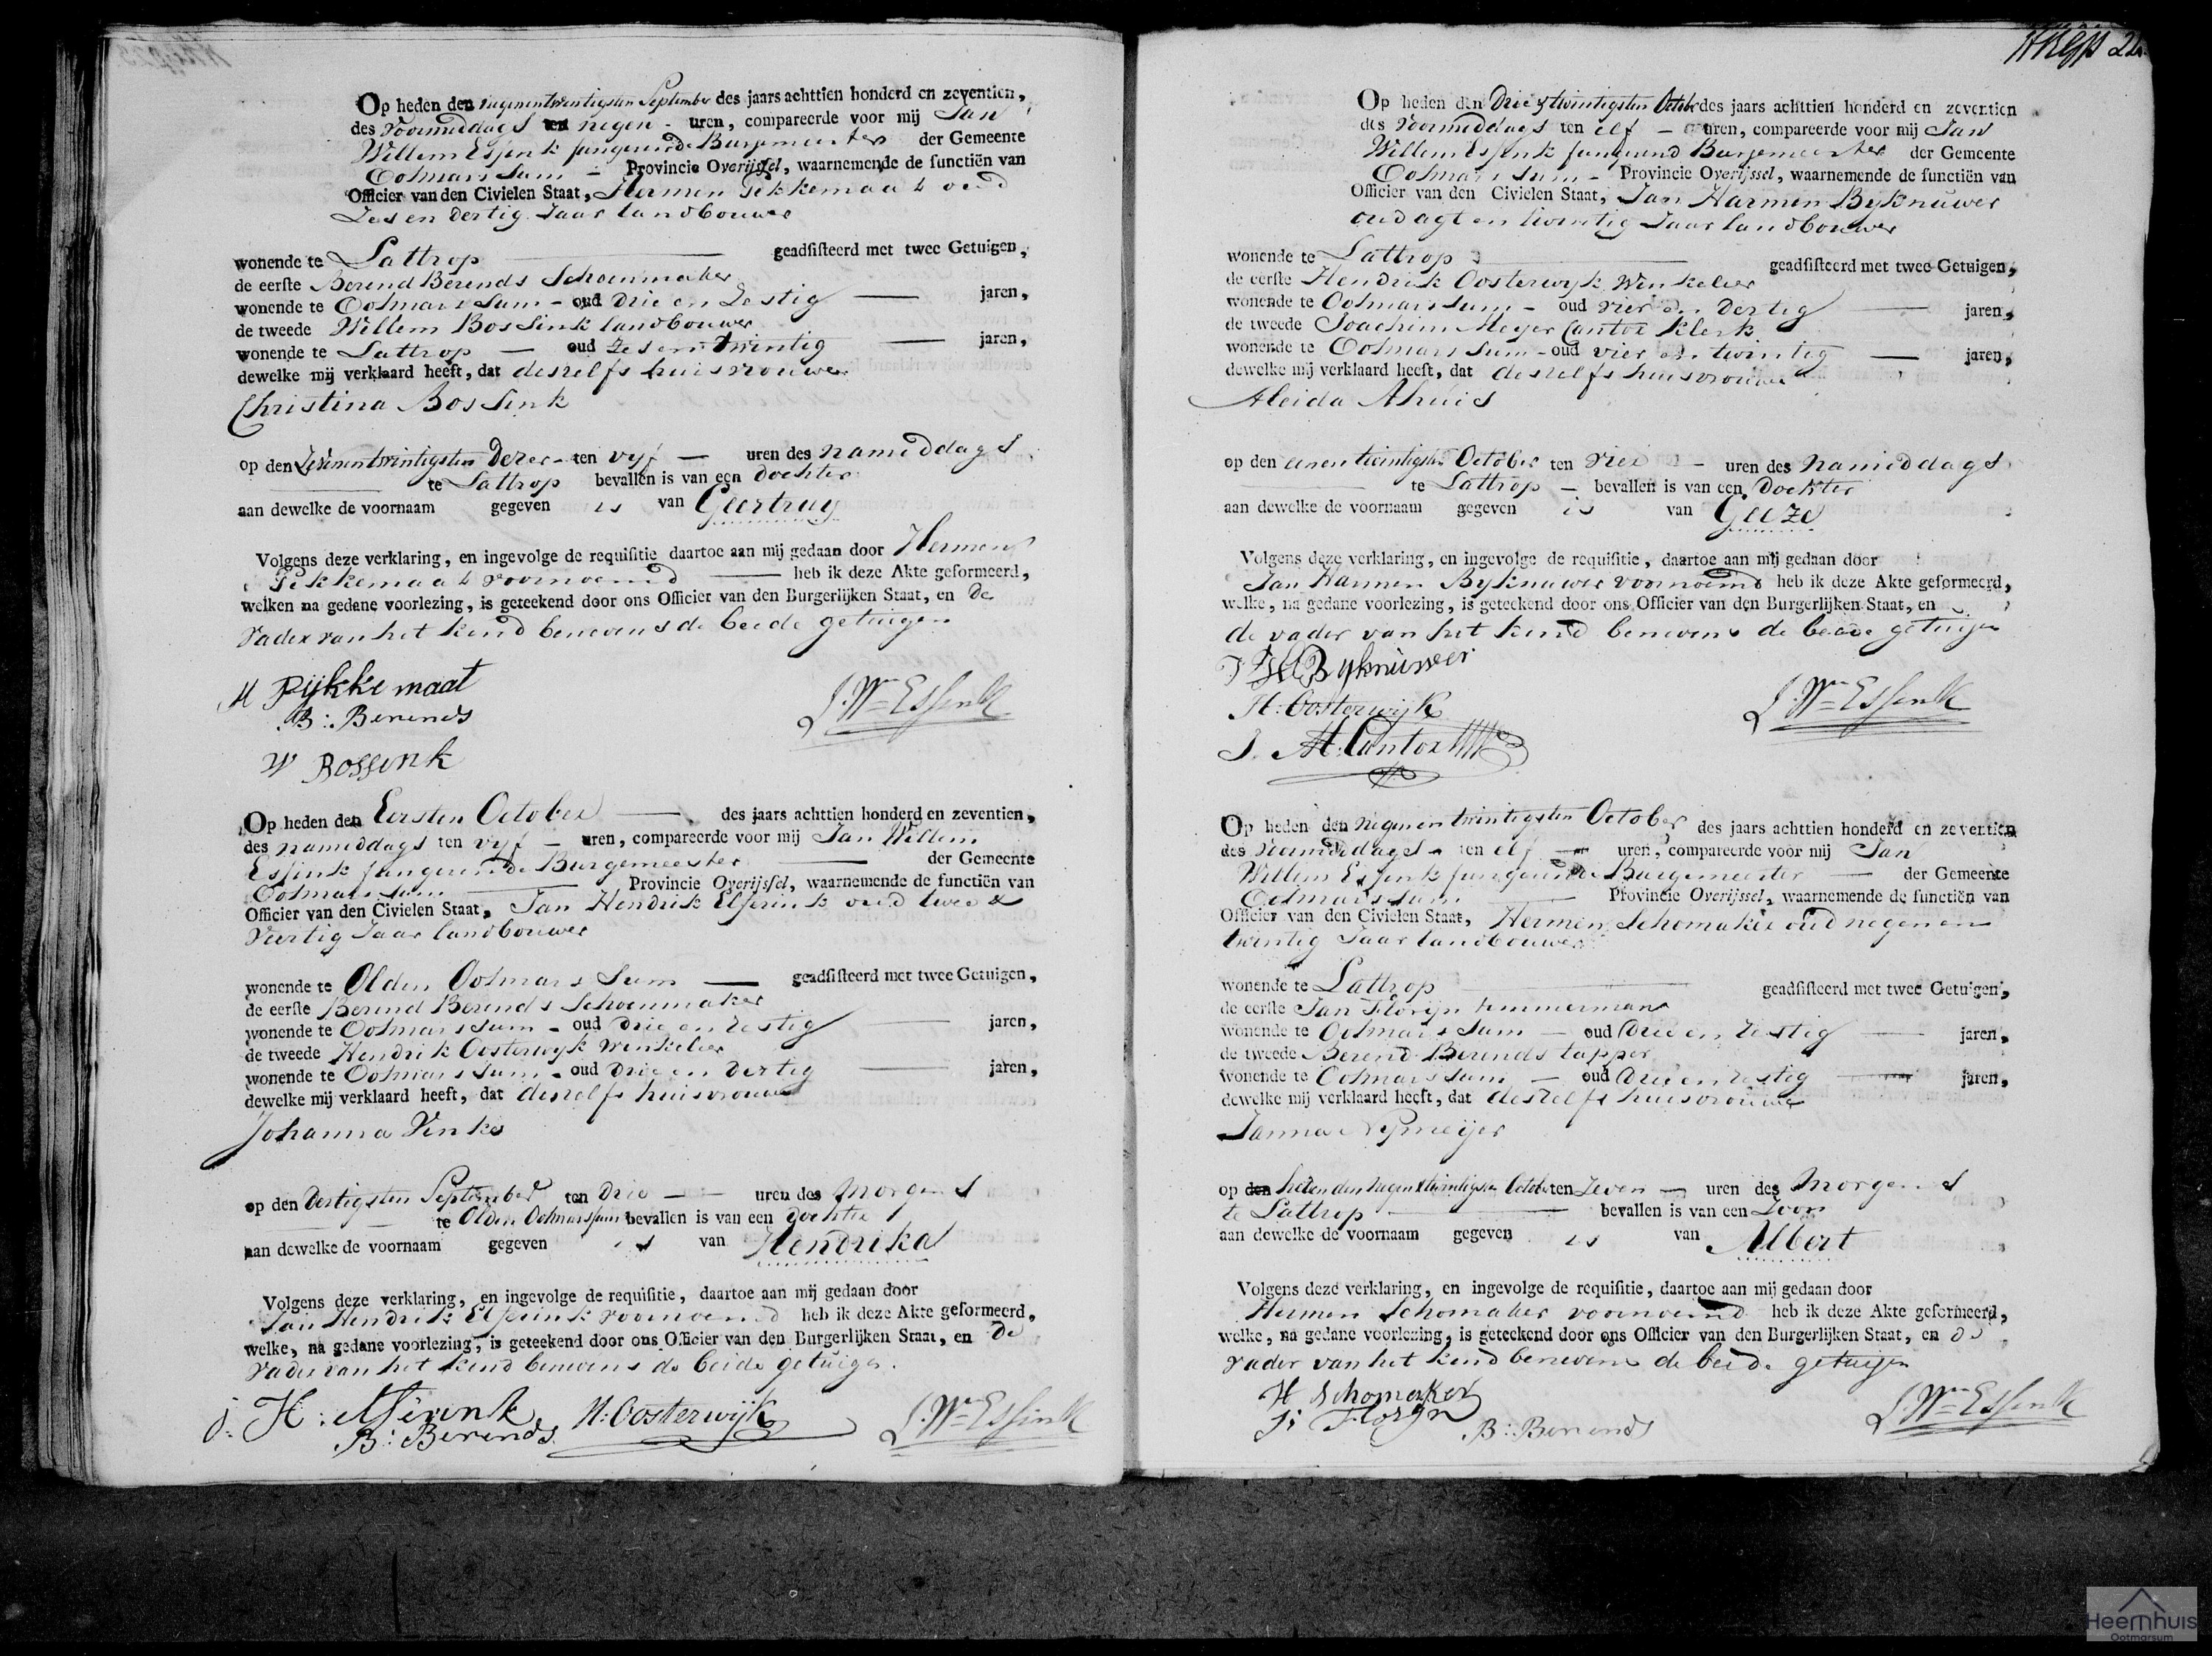 Op heden den negenentwintigsten September des jaars achttien honderd en zeventien,
des voormiddags ten negen - uren, compareerde voor mij Jan
Willem Essink fungeerende Burgemeester der Gemeente
Ootmarssum - Provincie Overijssel, waarnemende de functiën van
Officier van den Civielen Staat, Hermen Pekkemaat oud
Zes en dertig Jaar landbouwer
wonende te Lattrop geadsisteerd met twee Getuigen,
de eerste Berend Berends Schoenmaker
wonende te Ootmarssum - oud drie en Zestig jaren,
de tweede Willem Bossink landbouwer
wonende te Lattrop - oud Zes en twintig jaren,
dewelke mij verklaard heeft, dat deszelfs huisvrouwe
Christina Bossink
op den Zevenentwintigsten Dezer - ten vyf - uren des namiddags
te Lattrop bevallen is van een dochter
aan dewelke de voornaam gegeven is van Geertruy
Volgens deze verklaring, en ingevolge de requisitie daartoe aan mij gedaan door Hermen
Pekkemaat voornoemd heb ik deze Akte geformeerd,
welken na gedane voorlezing, is geteekend door ons Officier van den Burgerlijken Staat, en de
vader van het kind benevens de beide getuigen
H Pijkkemaat
B: Berends
J. Wm Essink
W Bossink
Op heden den Eersten October des jaars achttien honderd en zeventien,
des namiddags ten vyf - uren, compareerde voor mij Jan Willem
Essink fungerende Burgemeester der Gemeente
Ootmarssum Provincie Overijssel, waarnemende de functiën van
Officier van den Civielen Staat, Jan Hendrik Elferink oud twee &
Veertig Jaar landbouwer
wonende te Olden Ootmarssum geadsisteerd met twee Getuigen,
de eerste Berend Berends Schoenmaker
wonende te Ootmarssum - oud drie en zestig jaren,
de tweede Hendrik Oosterwyk Winkelier
wonende te Ootmarssum - oud drie en dertig jaren,
dewelke mij verklaard heeft, dat deszelfs huisvrouwe
Johanna Vinke
op den dertigsten September ten drie - uren des morgens
te Olden Ootmarssum bevallen is van een dochter
aan dewelke de voornaam gegeven is van Hendrika
Volgens deze verklaring, en ingevolge de requisitie, daartoe aan mij gedaan door
Jan Hendrik Elferink voornoemd heb ik deze Akte geformeerd,
welke, na gedane voorlezing, is geteekend door ons Officier van den Burgerlijken Staat, en de
vader van het kind benevens de beide getuigen.
J: H: Elferink H: Oosterwijk J. Wm Essink
B: Berends
Op heden den Drie & twintigsten October des jaars achttien honderd en zeventien
des Voormiddags ten elf - uren, compareerde voor mij Jan
Willem Essink fungeerend Burgemeester der Gemeente
Ootmarssum - Provincie Overijssel, waarnemende de functiën van
Officier van den Civielen Staat, Jan Harmen Byknuwer
oud agt en twintig Jaar landbouwer
wonende te Lattrop geadsisteerd met twee Getuigen,
de eerste Hendrik Oosterwyk Winkelier
wonende te Ootmarssum - oud vier en dertig jaren,
de tweede Joachim Meyer Cantor Klerk
wonende te Ootmarssum - oud vier en twintig jaren,
dewelke mij verklaard heeft, dat deszelfs huisvrouwe
Aleida Ahuis
op den eenen twintigsten October ten vier - uren des namiddags
te Lattrop - bevallen is van een Dochter
aan dewelke de voornaam gegeven is van Geeze
Volgens deze verklaring, en ingevolge de requisitie, daartoe aan mij gedaan door
Jan Harmen Byknuwer voornoemd heb ik deze Akte geformeerd,
welke, na gedane voorlezing, is geteekend door ons Officier van den Burgerlijken Staat, en
de vader van het kind benevens de beide getuigen
J H Byknuwer
H: Oosterwijk J. Wm Essink
J. M: Cantor
Op heden den negenentwintigsten October des jaars achttien honderd en zeventien
des Voormiddags - ten elf - uren, compareerde voor mij Jan
Willem Essink fungeerende Burgemeester der Gemeente
Ootmarssum Provincie Overijssel, waarnemende de functiën van
Officier van den Civielen Staat, Hermen Schomaker oud negen en
twintig Jaar landbouwer
wonende te Lattrop geadsisteerd met twee Getuigen,
de eerste Jan Florijn timmerman
wonende te Ootmarssum - oud drie en Zestig jaren,
de tweede Berend Berends tapper
wonende te Ootmarssum - oud drie en zestig jaren,
dewelke mij verklaard heeft, dat deszelfs huisvrouwe
Janna Nymeijer
op den heden den negen & twintigsten October ten Zeven - uren des Morgens
te Lattrop bevallen is van een Zoon
aan dewelke de voornaam gegeven is van Albert
Volgens deze verklaring, en ingevolge de requisitie, daartoe aan mij gedaan door
Hermen Schomaker voornoemd heb ik deze Akte geformeerd,
welke, na gedane voorlezing, is geteekend door ons Officier van den Burgerlijken Staat, en de
vader van het kind benevens de beide getuigen
H Schomaker
J: Florijn B: Berends J. Wm Essink
Heemhuis
Ootmarsum